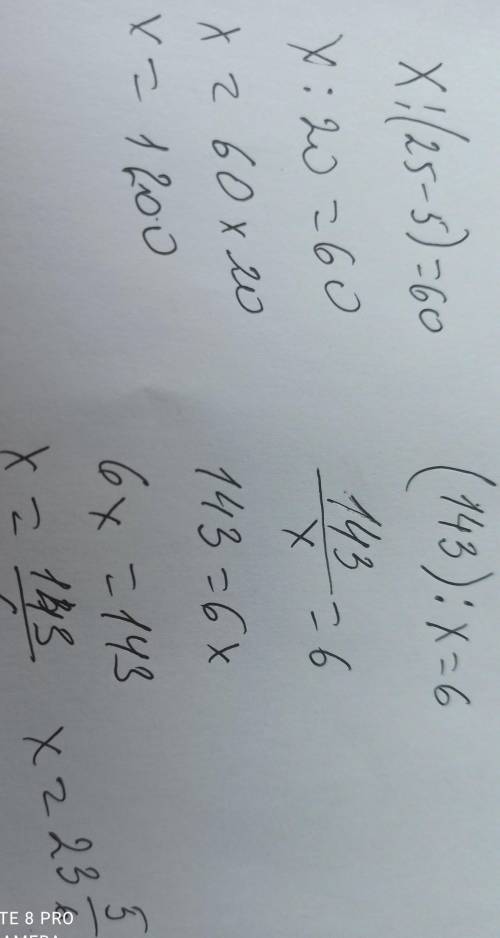 X:(25-5)=60
X:20=60
X=60x20
X=1200
(143):X=6
143/x=6
143=6x
6x=143
X=143/
X=23 5/
TE 8 PRO
CAMERA